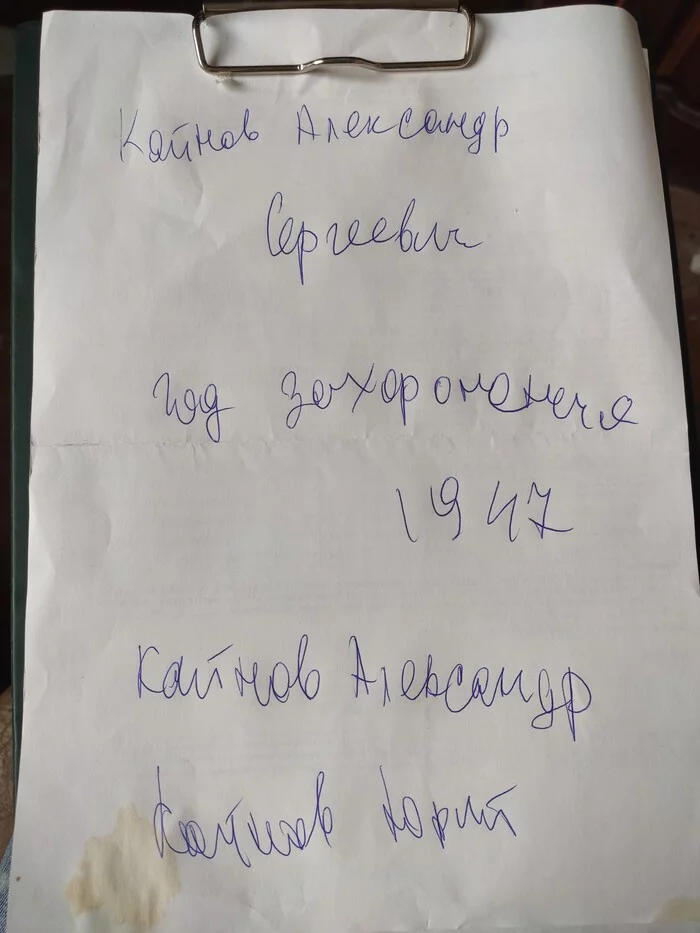 Кайнов Александр
Сергеевич
год захоронения
1947
Кайнов Александр
Кайнов Юрий